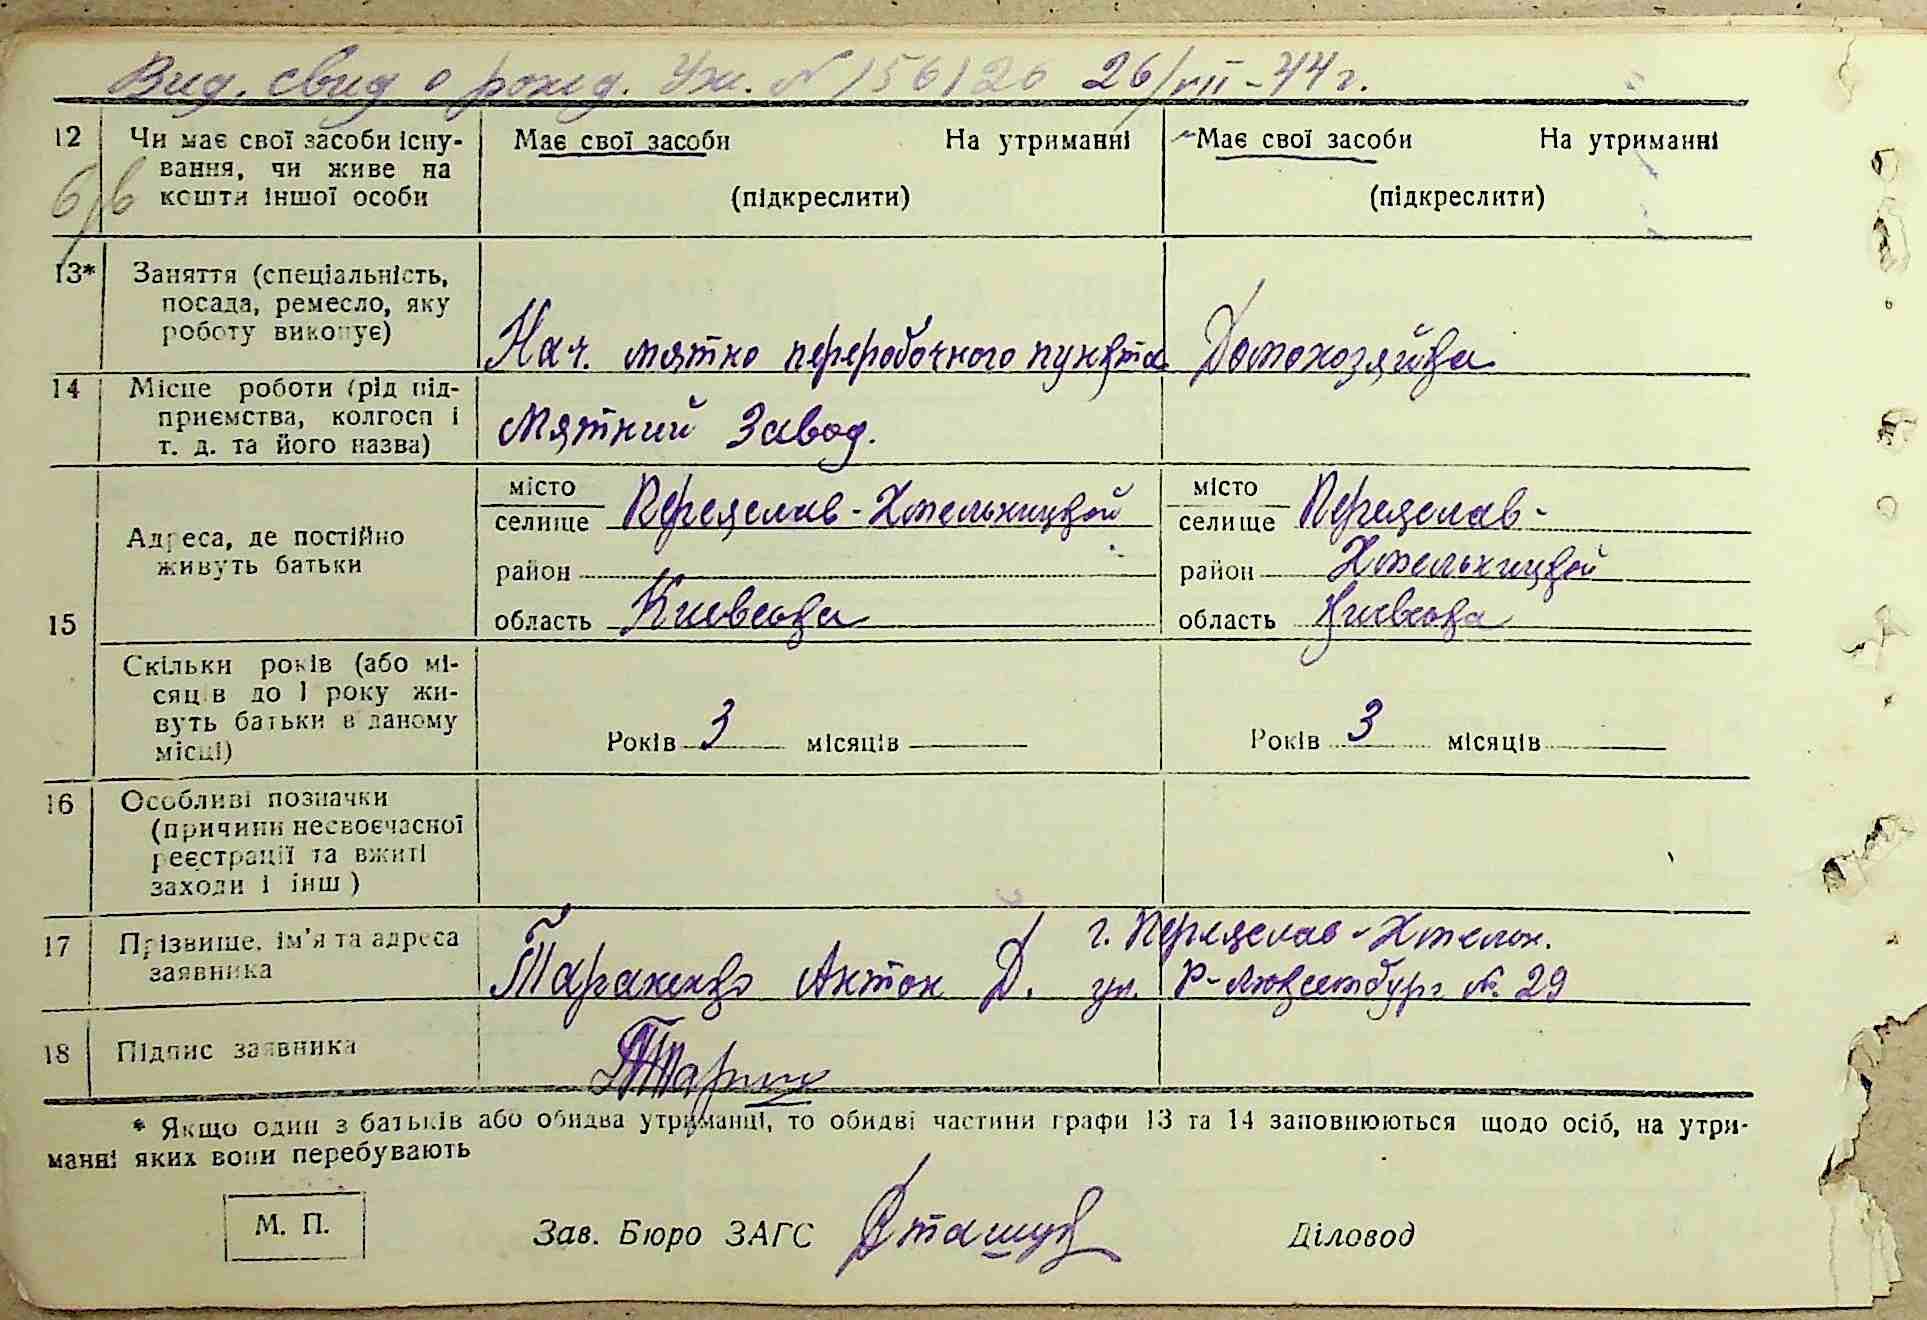 Вид. свид о рожд. Уж. N 156126 26/VII-44 г.
12 Чи має свої засоби існу-
вання, чи живе на
кошти іншої особи
Має свої засоби На утриманні
(підкреслити)
Має свої засоби На утриманні
(підкреслити)
13* Заняття (спеціальність,
посада, ремесло, яку
роботу виконує)
Нач. мятно переробочного пункта
Домохозяйка
14 Місце роботи (рід під-
приємства, колгосп і
т. д. та його назва)
Мятний Завод.
15 Адреса, де постійно
живуть батьки
місто
селище Переяслав-Хмельницкой
район
область Киевская
місто
селище Переяслав-
район Хмельницкой
область Киевская
Скільки років (або мі-
сяців до 1 року жи-
вуть батьки в даному
місці)
Років 3 місяців
Років 3 місяців
16 Особливі позначки
(причини несвоєчасної
реєстрації та вжиті
заходи і інш)
17 Прізвище, ім'я та адреса
заявника
г. Переяслав-Хмельн.
Антон Д. ул. Р-Люксембург №. 29
18 Підпис заявника
* Якщо один з батьків або обидва утриманці, то обидві частини графи 13 та 14 заповнюються щодо осіб, на утри-
манні яких вони перебувають
М. П.
Зав. Бюро ЗАГС
Діловод